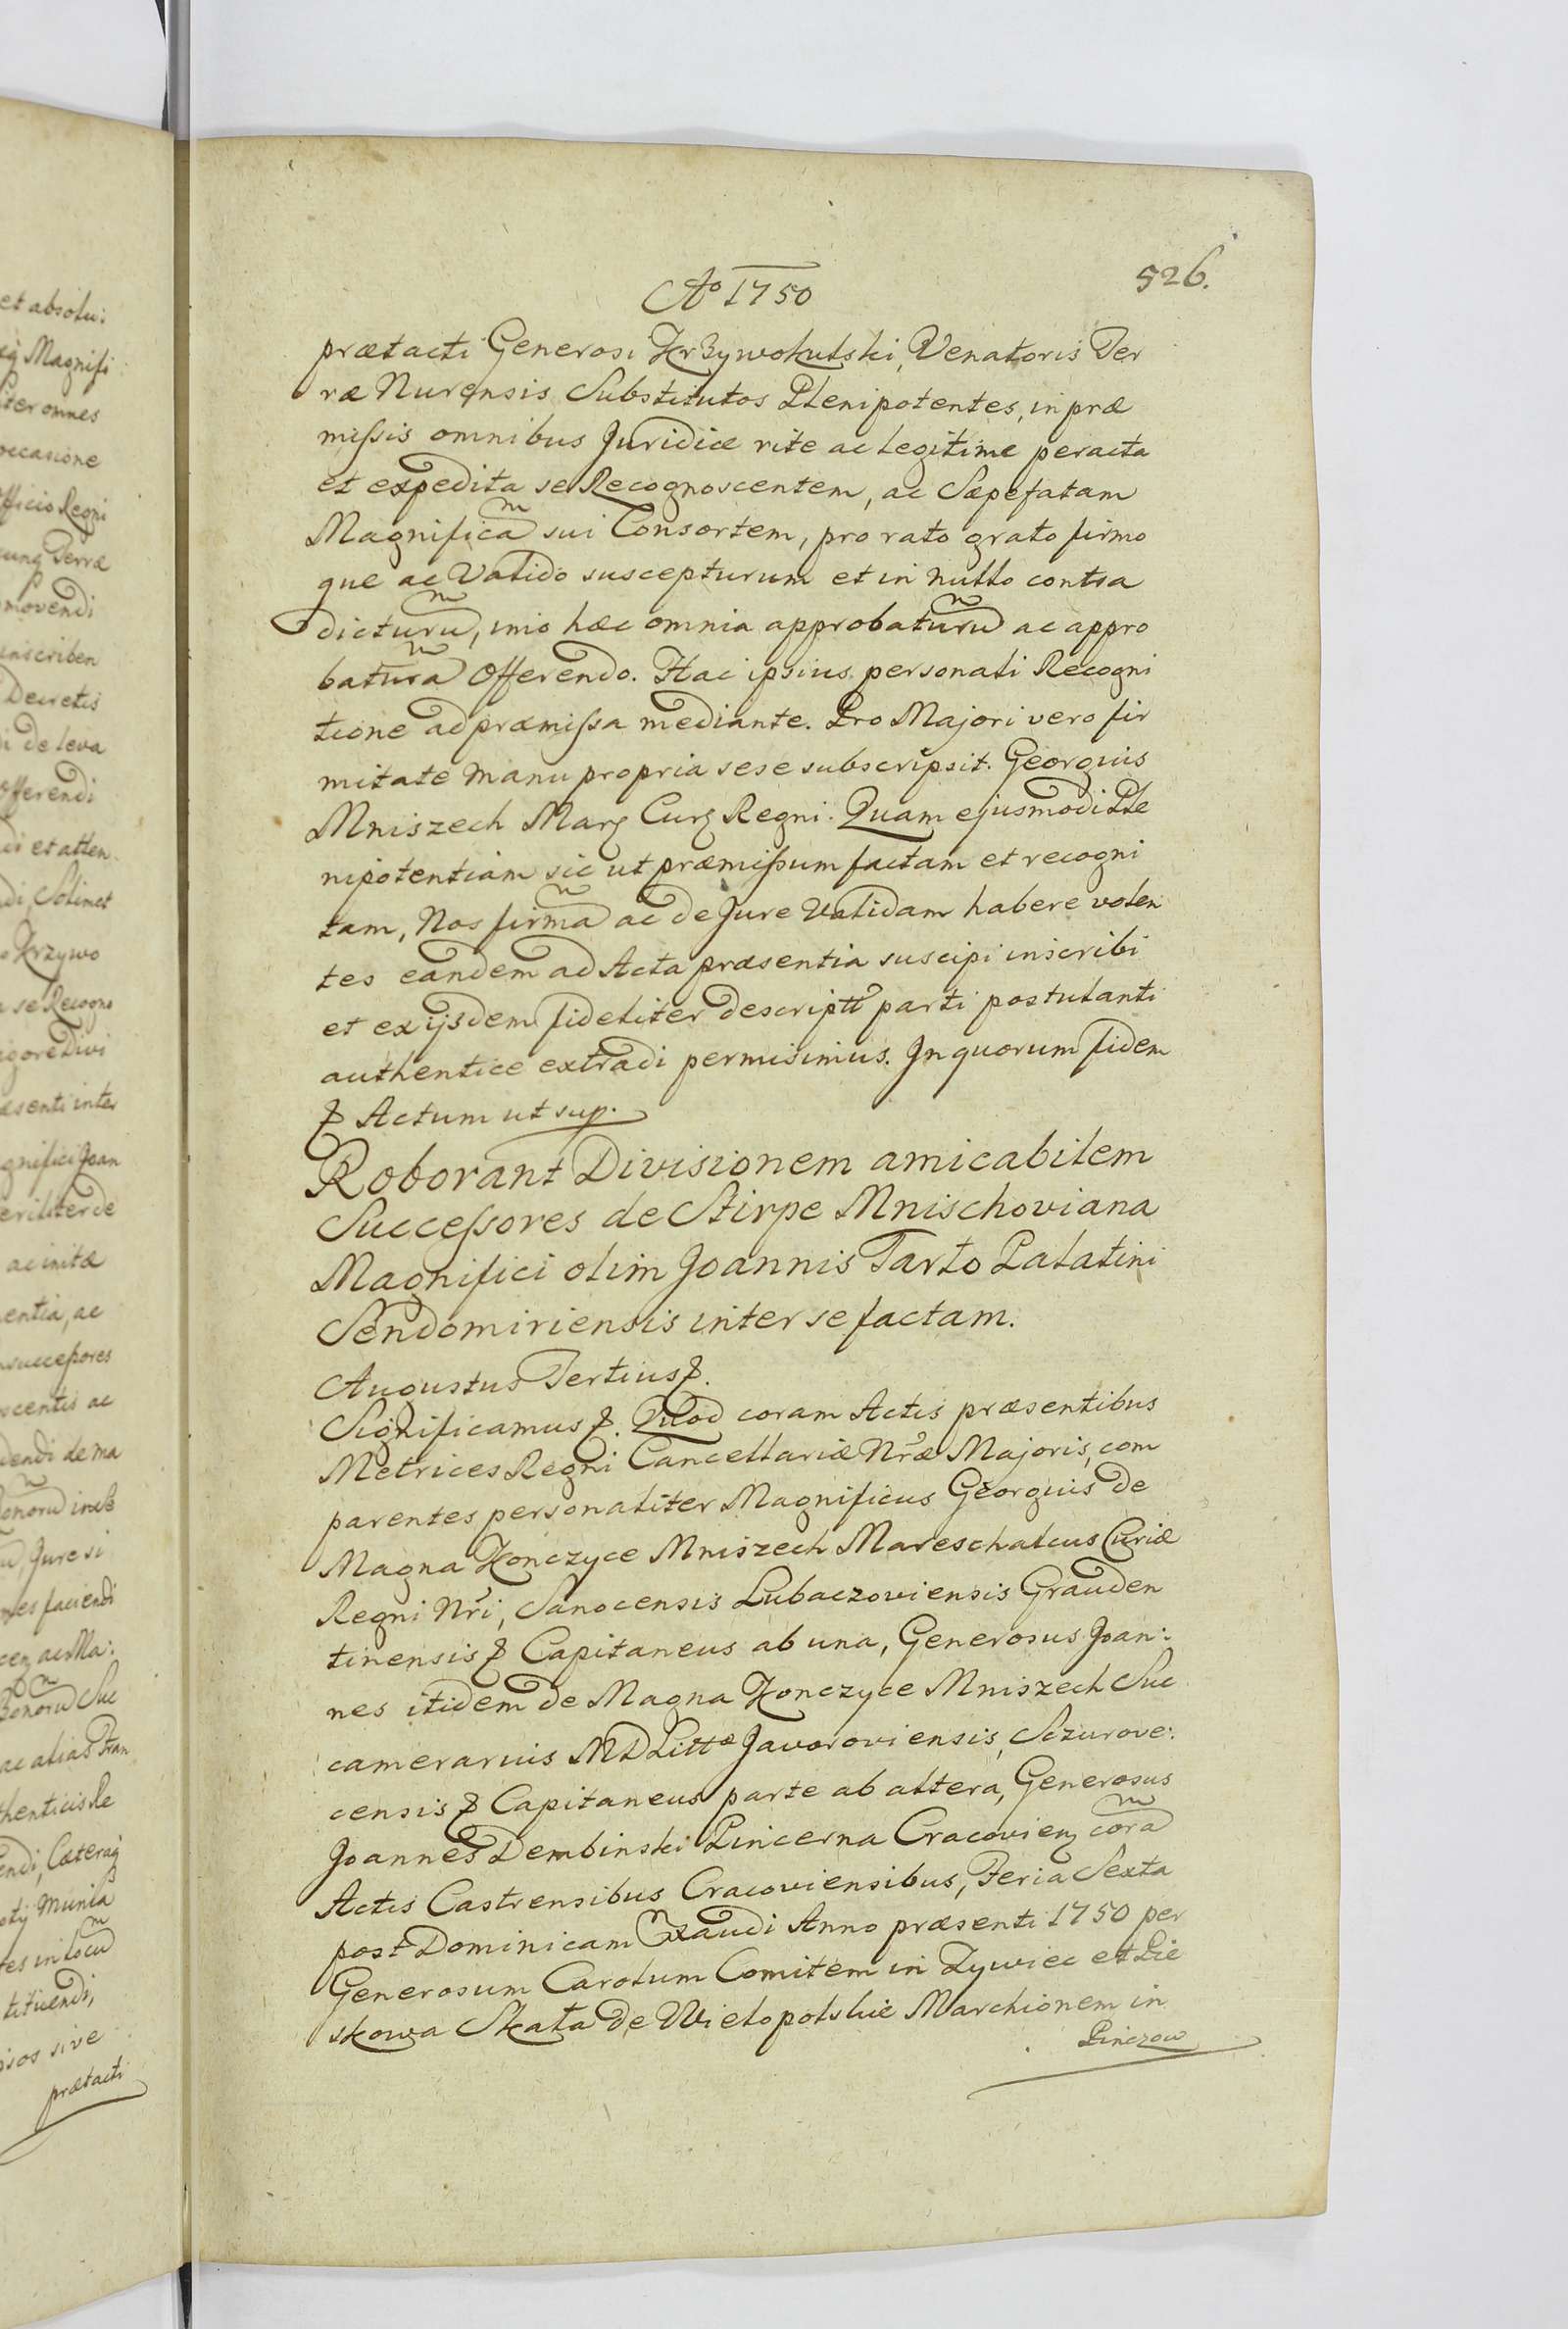 et absolu:
Magnifi
iter omnes
occasione
fficio Regni
Terræ
movendi
inscriben
Decretis
di de leva
Offerendi
di et atten
di, Solinet
Krzywo
se Recogno
igore Divi
æsenti inter
gnifici Joan
eriliter de
ac initæ
entia, ac
successores
scentis ac
dendi de ma
Jure si
nes faciendi
ac alias Tran
thenticis Re
endi, Cæteraq
tes in Locu
tituendi,
isos sive
prætacti
Aº 1750
526.
prætacti Generosi Krzywokulski, Venatoris Ter
ræ Nurensis Substitutos Plenipotentes, in præ
miſsis omnibus Juridicæ rite ac legitime peracta
et expedita se Recognoscentem, ac Sæpefatam
Magnificã sui Consortem, pro rato grato firmo
que ac Valido suscepturum et in nullo contra
dicturũ, imo hæc omnia approbaturũ ac appro
baturã Offerendo. Hac ipsius personali Recogni
tione ad præmiſsa mediante. Pro Majori vero fir
mitate manu propria sese subscripsit. Georgius
Mniszech Marꝫ Curꝫ Regni. Quam ejusmodi Ple
nipotentiam sic ut præmiſsum factam et recogni
tam, Nos firmã ac de Jure Validam habere volen
tes eandem ad Acta præsentia suscipi inscribi
et ex ijsdem fideliter descriptt parti postulanti
authentice extradi permisimus. In quorum fidem
ꝑ Actum ut sup.
Roborant Divisionem amicabilem
Succeſsores de Stirpe Mnischoviana
Magnifici olim Joannis Tarło Palatini
Sendomiriensis inter se factam.
Augustus Tertius ꝑ.
Significamus ꝑ. Quod coram Actis præsentibus
Metrices Regni Cancellariæ Nr̃æ Majoris, com
parentes personaliter Magnificus Georgius de
Magna Konczyce Mniszech Mareschalcus Curiæ
Regni Nr̃i, Sanocensis Lubaczoviensis Grauden
tinensis ꝑ Capitaneus ab una, Generosus Joan:
nes itidem de Magna Konczyce Mniszech Suc
camerarius MDLittæ Javoroviensis, Sczurove:
censis ꝑ Capitaneus parte ab altera, Generosus
Joannes Dembinski Pincerna Cracovienꝫ corã
Actis Castrensibus Cracoviensibus, Feria Sexta
post Dominicam Exaudi Anno præsenti 1750 per
Generosum Carolum Comitem in Zywiec et Pie
skowa Skała de Wielopolskie Marchionem in
Pinczow